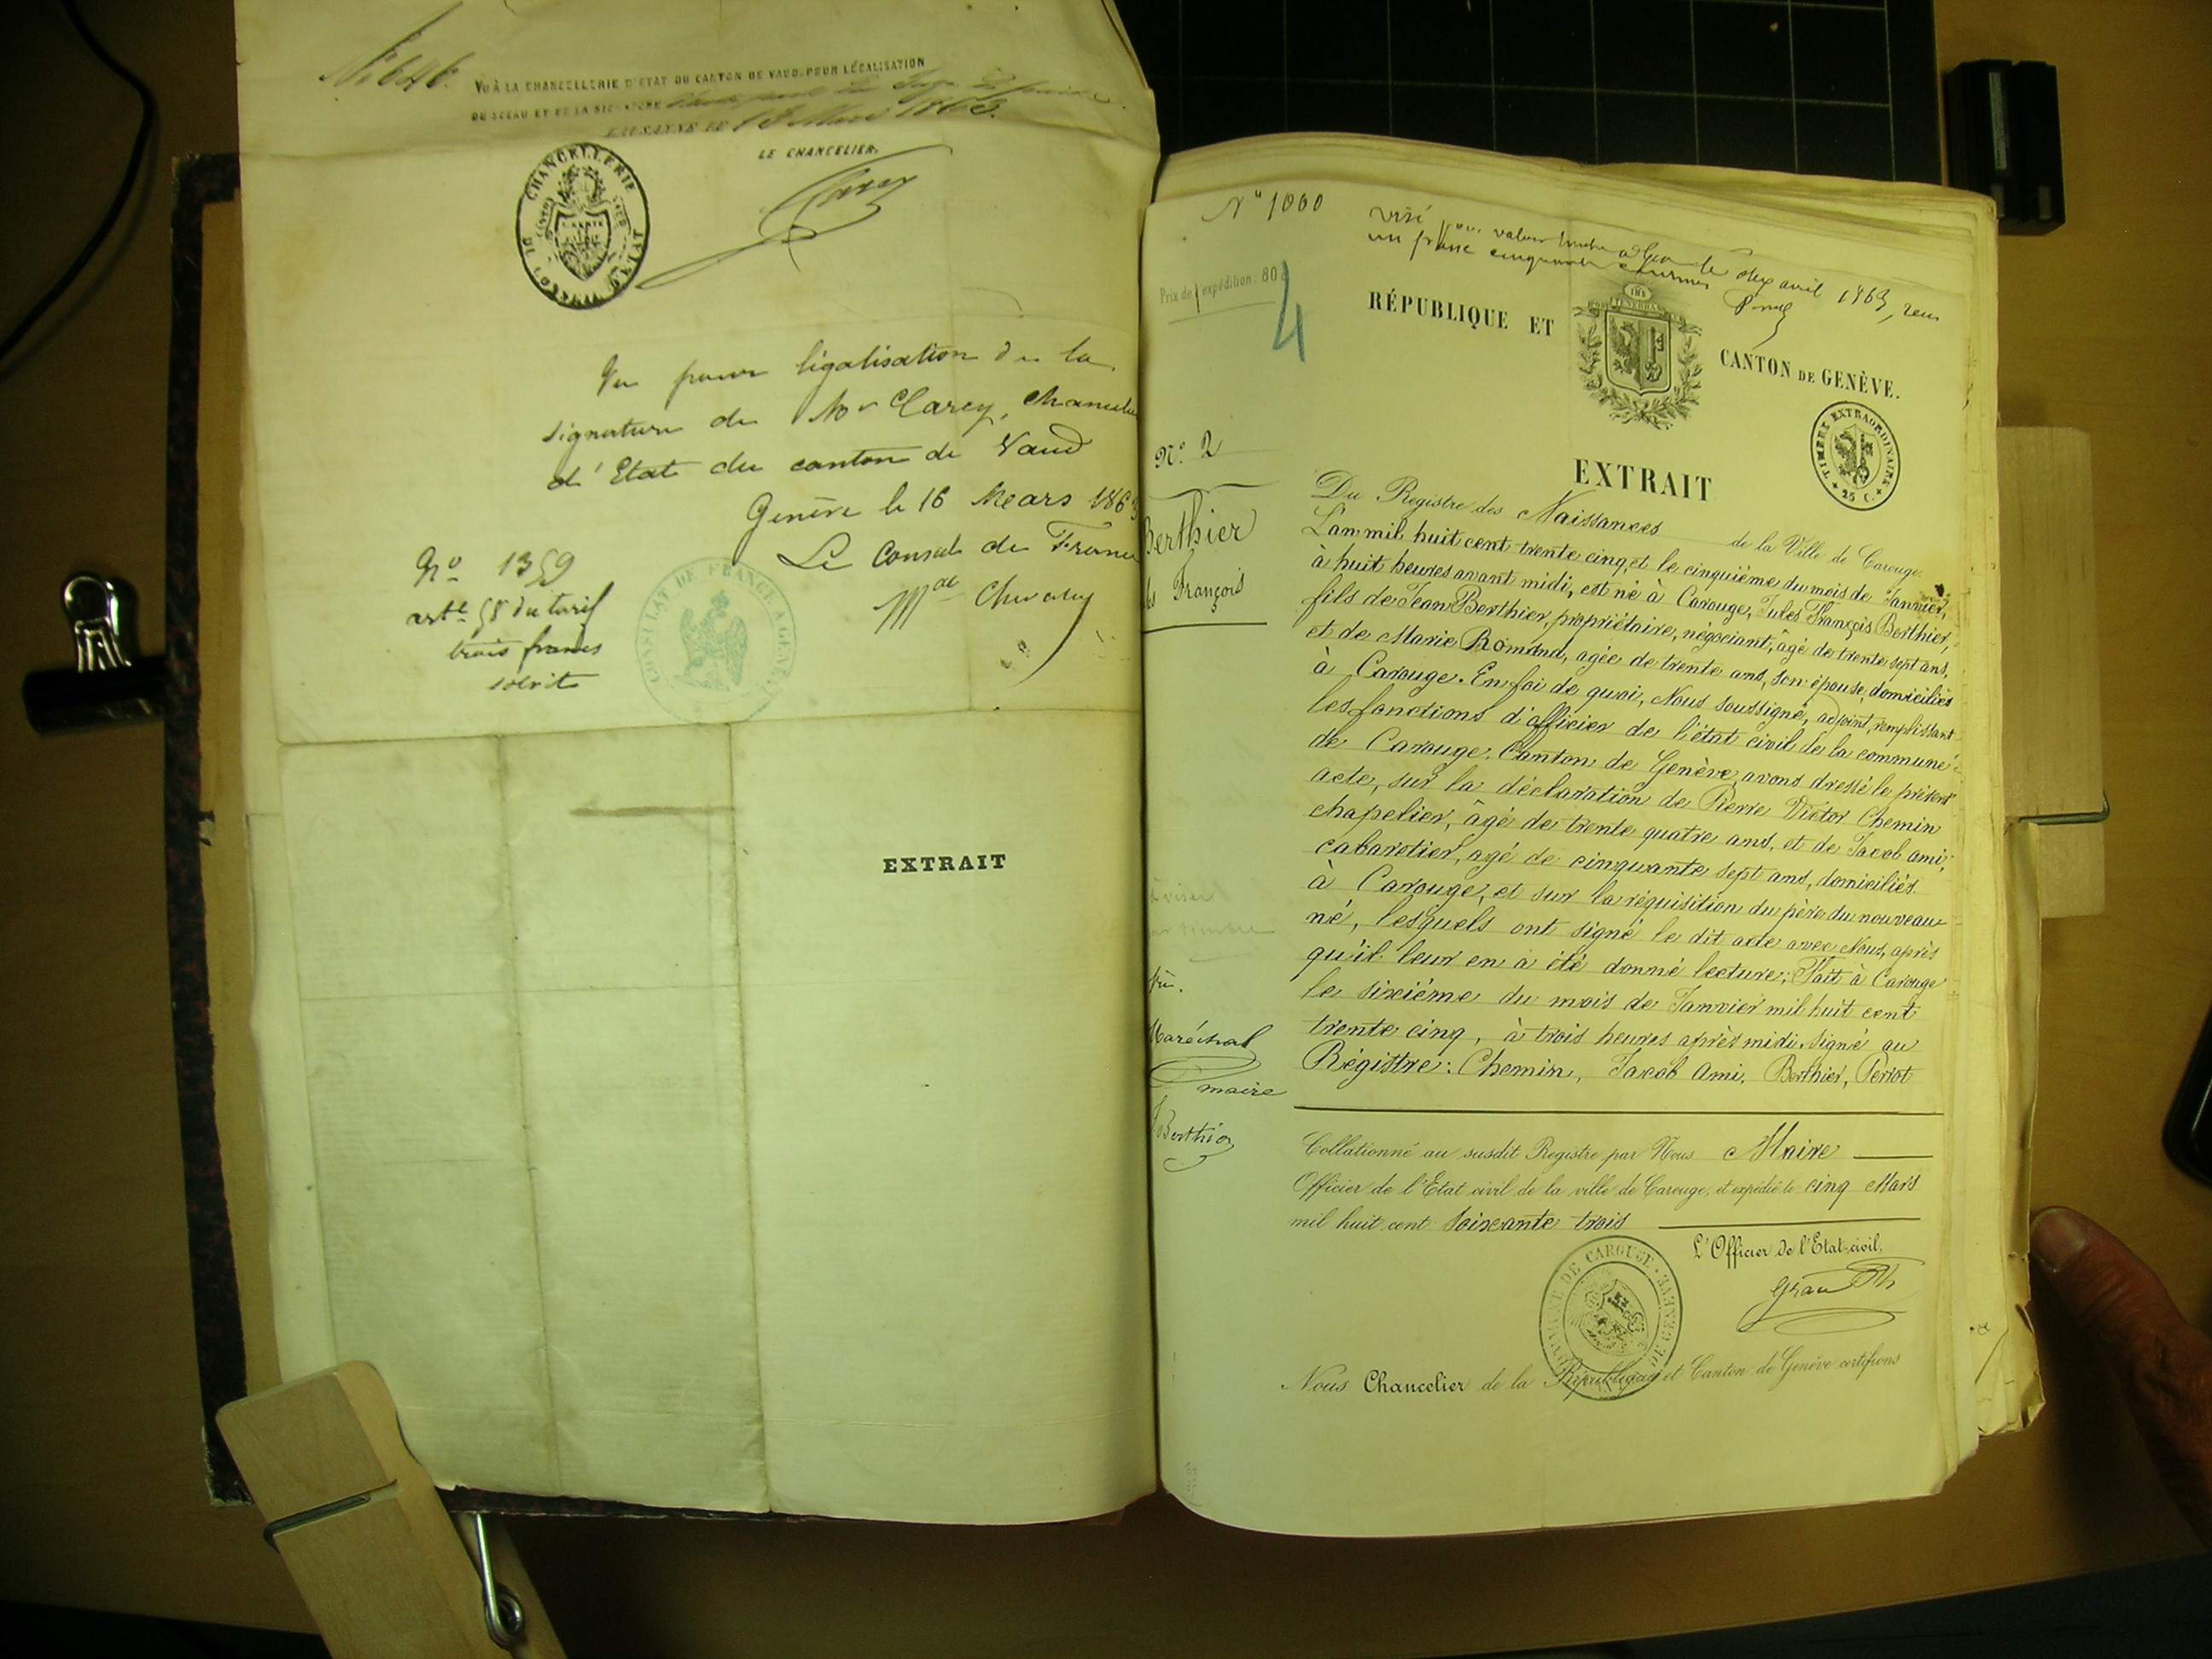 VU À LA CHANCELLERIE D'ETAT DU CANTON DE VAUD, POUR LÉGALISATION
DU SCEAU ET DE LA SIGNATURE
LAUSANNE LE 13 Mars 1863.
LE CHANCELIER.
Carey
CHANCELLERIE D'ETAT
CANTON VAUD
Vu pour légalisation de la
signature de Mr Carey, chancelier
d'Etat du canton de Vaud
Genève le 16 Mars 1863
Le Consul de France
No 1359
art. 58 du tarif
trois francs
CONSULAT DE FRANCE A GENÈVE
EXTRAIT
No 1000
visé pour valeur timbre à
un franc cinquante centimes dix avril 1863,
Prix de l'expédition: 80 c
4
RÉPUBLIQUE ET
CANTON DE GENÈVE.
TIMBRE EXTRAORDINAIRE
25 C.
EXTRAIT
No. 2
Berthier
François
Du Registre des Naissances de la Ville de Carouge.
L'an mil huit cent trente cinq, et le cinquième du mois de Janvier,
à huit heures avant midi, est né à Carouge, Jules François Berthier,
fils de Jean Berthier, propriétaire, négociant, âgé de trente sept ans,
et de Marie Romand, agée de trente ans, son épouse, domiciliés
à Carouge. En foi de quoi, Nous soussigné, adjoint, remplissant
les fonctions d'officier de l'état civil de la commune
de Carouge, Canton de Genève, avons dressé le présent
acte, sur la déclaration de Pierre Victor Chemin
chapelier, âgé de trente quatre ans, et de Jacob ami,
cabaretier, agé de cinquante sept ans, domiciliés
à Carouge, et sur la réquisition du père du nouveau
né, lesquels ont signé le dit acte avec Nous, après
qu'il leur en a été donné lecture; Fait à Carouge
le sixiéme du mois de Janvier mil huit cent
trente cinq, à trois heures après midi. Signé au
Régistre: Chemin, Jacob Ami, Berthier, Perrot
à viser
timbre
Maréchal
maire
Berthier
Collationné au susdit Registre par Nous Maire
Officier de l'Etat civil de la ville de Carouge, et expédié le cinq Mars
mil huit cent soixante trois
L'Officier de l'Etat-civil,
DE CAROUGE
Nous Chancelier de la République et Canton de Genève certifions